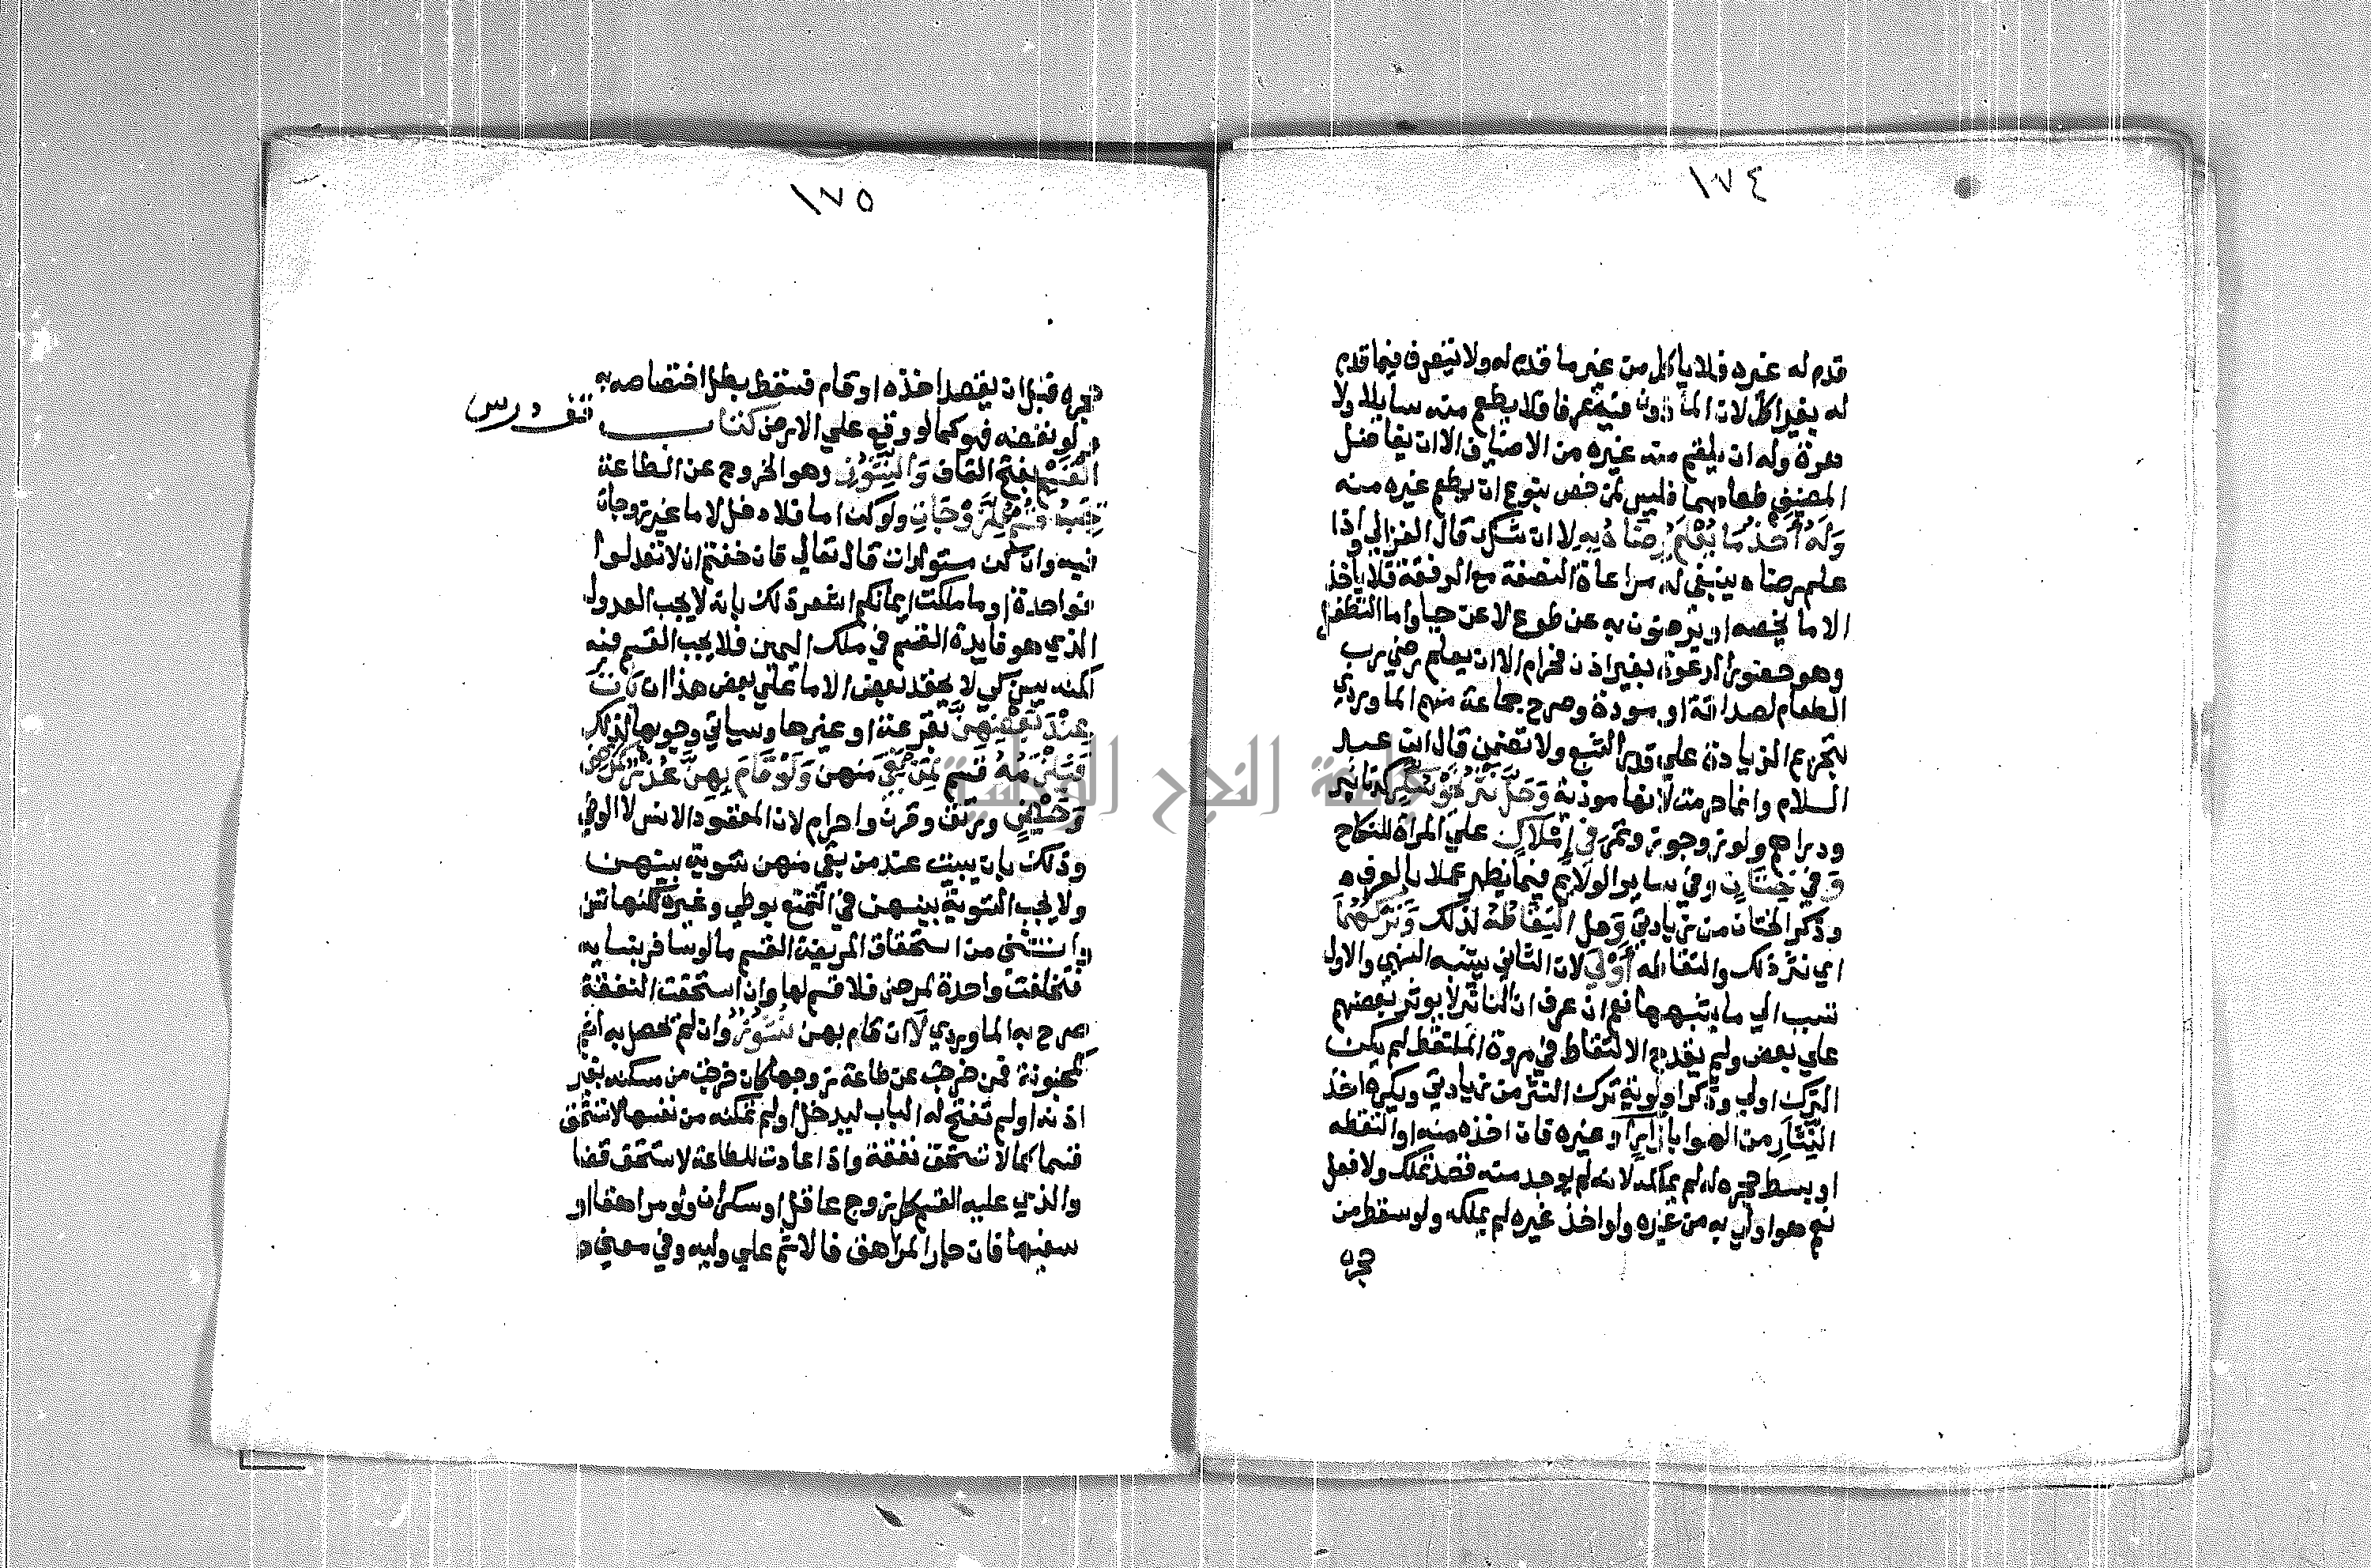 ١٧٤
قدم له غيره فلا ياكل من غير ما قدم له ولا يتصرف فيما قدم
له بغير اكل لان الماذون فيه عرفا فلا يطعم منه سايلا ولا
هرة وله ان يلقم منه غيره من الاضياف الا ان يفاضل
المضيف طعامهما فليس لمن خص بنوع ان يطعم غيره منه
وَلَهُ أَخْذُ مَا يُعْلَمُ رِضَاهُ بِهِ لا ان شك قال الغزالي واذا
علم رضاه ينبغي له مراعاة النصفة مع الرفقة فلا ياخذ
الا ما يخصه او يرضون به عن طوع لا عن حيا واما التطفل
وهو حضور الدعوة بغير اذن فحرام الا ان يعلم رضي رب
الطعام لصداقة او مودة وصرح جماعة منهم الماوردي
بتحريم الزيادة على قدر الشبع ولا تضمن قال ابن عبد
السلام وانما حرمت لانها موذية وَحَلَّ نَثْرُ نَحْوِ سُكَّرٍ كدنانير
ودراهم ولوز وجوز وتمر فِي إِمْلَاكٍ علي المراة للنكاح
وَفي خِتَانٍ وفي ساير الولايم فيما يظهر عملا بالعرف
وذكر الختان من زيادتي وَحل الْتِقَاطُهُ لذلك وَتَرْكُهُمَا
اي نثر ذلك والتقاطه أَوْلَى لان الثاني يشبه النهبي والاول
تسبب الي ما يشبهها نعم ان عرف ان الناثر لا يوثر بعضهم
علي بعض ولم يقدح الالتقاط في مروة الملتقط لم يكن
الترك اولي وذكر اولوية ترك النثر من زيادتي ويكره اخذ
النِّثَارِ من الهوا بازار او غيره فان اخذه منه او التقطه
او بسط حجره له لم يملكه لانه لم يوجد منه قصد تملك ولا فعل
نعم هو اولي به من غيره ولو اخذ غيره لم يملكه ولو سقط من
حجره
١٧٥
حجره قبل ان يقصد اخذه او قام فسقط بطل اختصاصه به
ولو نفضه فهو كما لو وقع علي الارض كتاب
قف درس
الْقَسْمِ بفتح القاف وَالنُّشُوزِ وهو الخروج عن الطاعة
يَجِبُ قَسْمٌ لِزَوْجَاتٍ ولو كن اما فلا دخل لاما غير زوجات
فيه وان كن مستولدات قال تعالي فان خفتم ان لا تعدلوا
فواحدة او ما ملكت ايمانكم اشعر ذلك بانه لا يجب العدول
الذي هو فايدة القسم في ملك اليمين فلا يجب القسم فيه
لكنه يسن كي لا يحقد بعض الاما علي بعض هذا ان بَاتَ
عِنْدَ بَعْضِهِنَّ بقرعة او غيرها وسياتي وجوبها لذلك
فَيَلْزَمُهُ قسم لِمَنْ بَقِيَ منهن وَلَوْ قَامَ بِهِنَّ عُذْرٌ كَمَرَضٍ
وَحَيْضٍ ورتق وقرن واحرام لان المقصود الانس لا الوطي
وذلك بان يبيت عند من بقي منهن تسوية بينهن
ولا يجب التسوية بينهن في التمتع بوطي وغيره لكنها تسن
واستثني من استحقاق المريضة القسم ما لو سافر بنسايه
فتخلفت واحدة لمرض فلا قسم لها وان استحقت النفقة
صرح به الماوردي لَا ان قام بهن نُشُوزٌ وان لم يحصل به اثم
كمجنونة فمن خرجت عن طاعة زوجها كان خرجت من مسكنه بغير
اذنه او لم تفتح له الباب ليدخل او لم تمكنه من نفسها لا تستحق
قسما كما لا تستحق نفقة واذا عادت للطاعة لا تستحق قضا
والذي عليه القسم كل زوج عاقل او سكران ولو مراهقا او
سفيها فان جار المراهق فالاثم علي وليه وفي معني